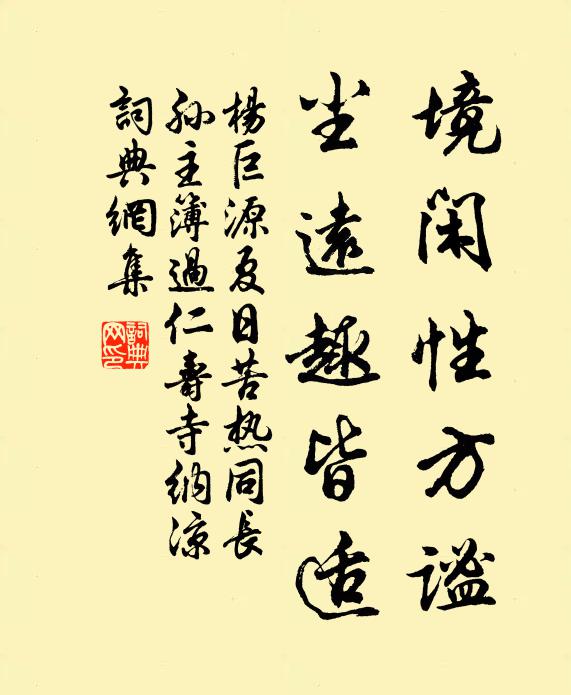 境閑性方谧
尘遠趣皆适
楊巨源夏日苦热同長
孫主簿過仁壽寺納凉
詞典網集
詞典网印